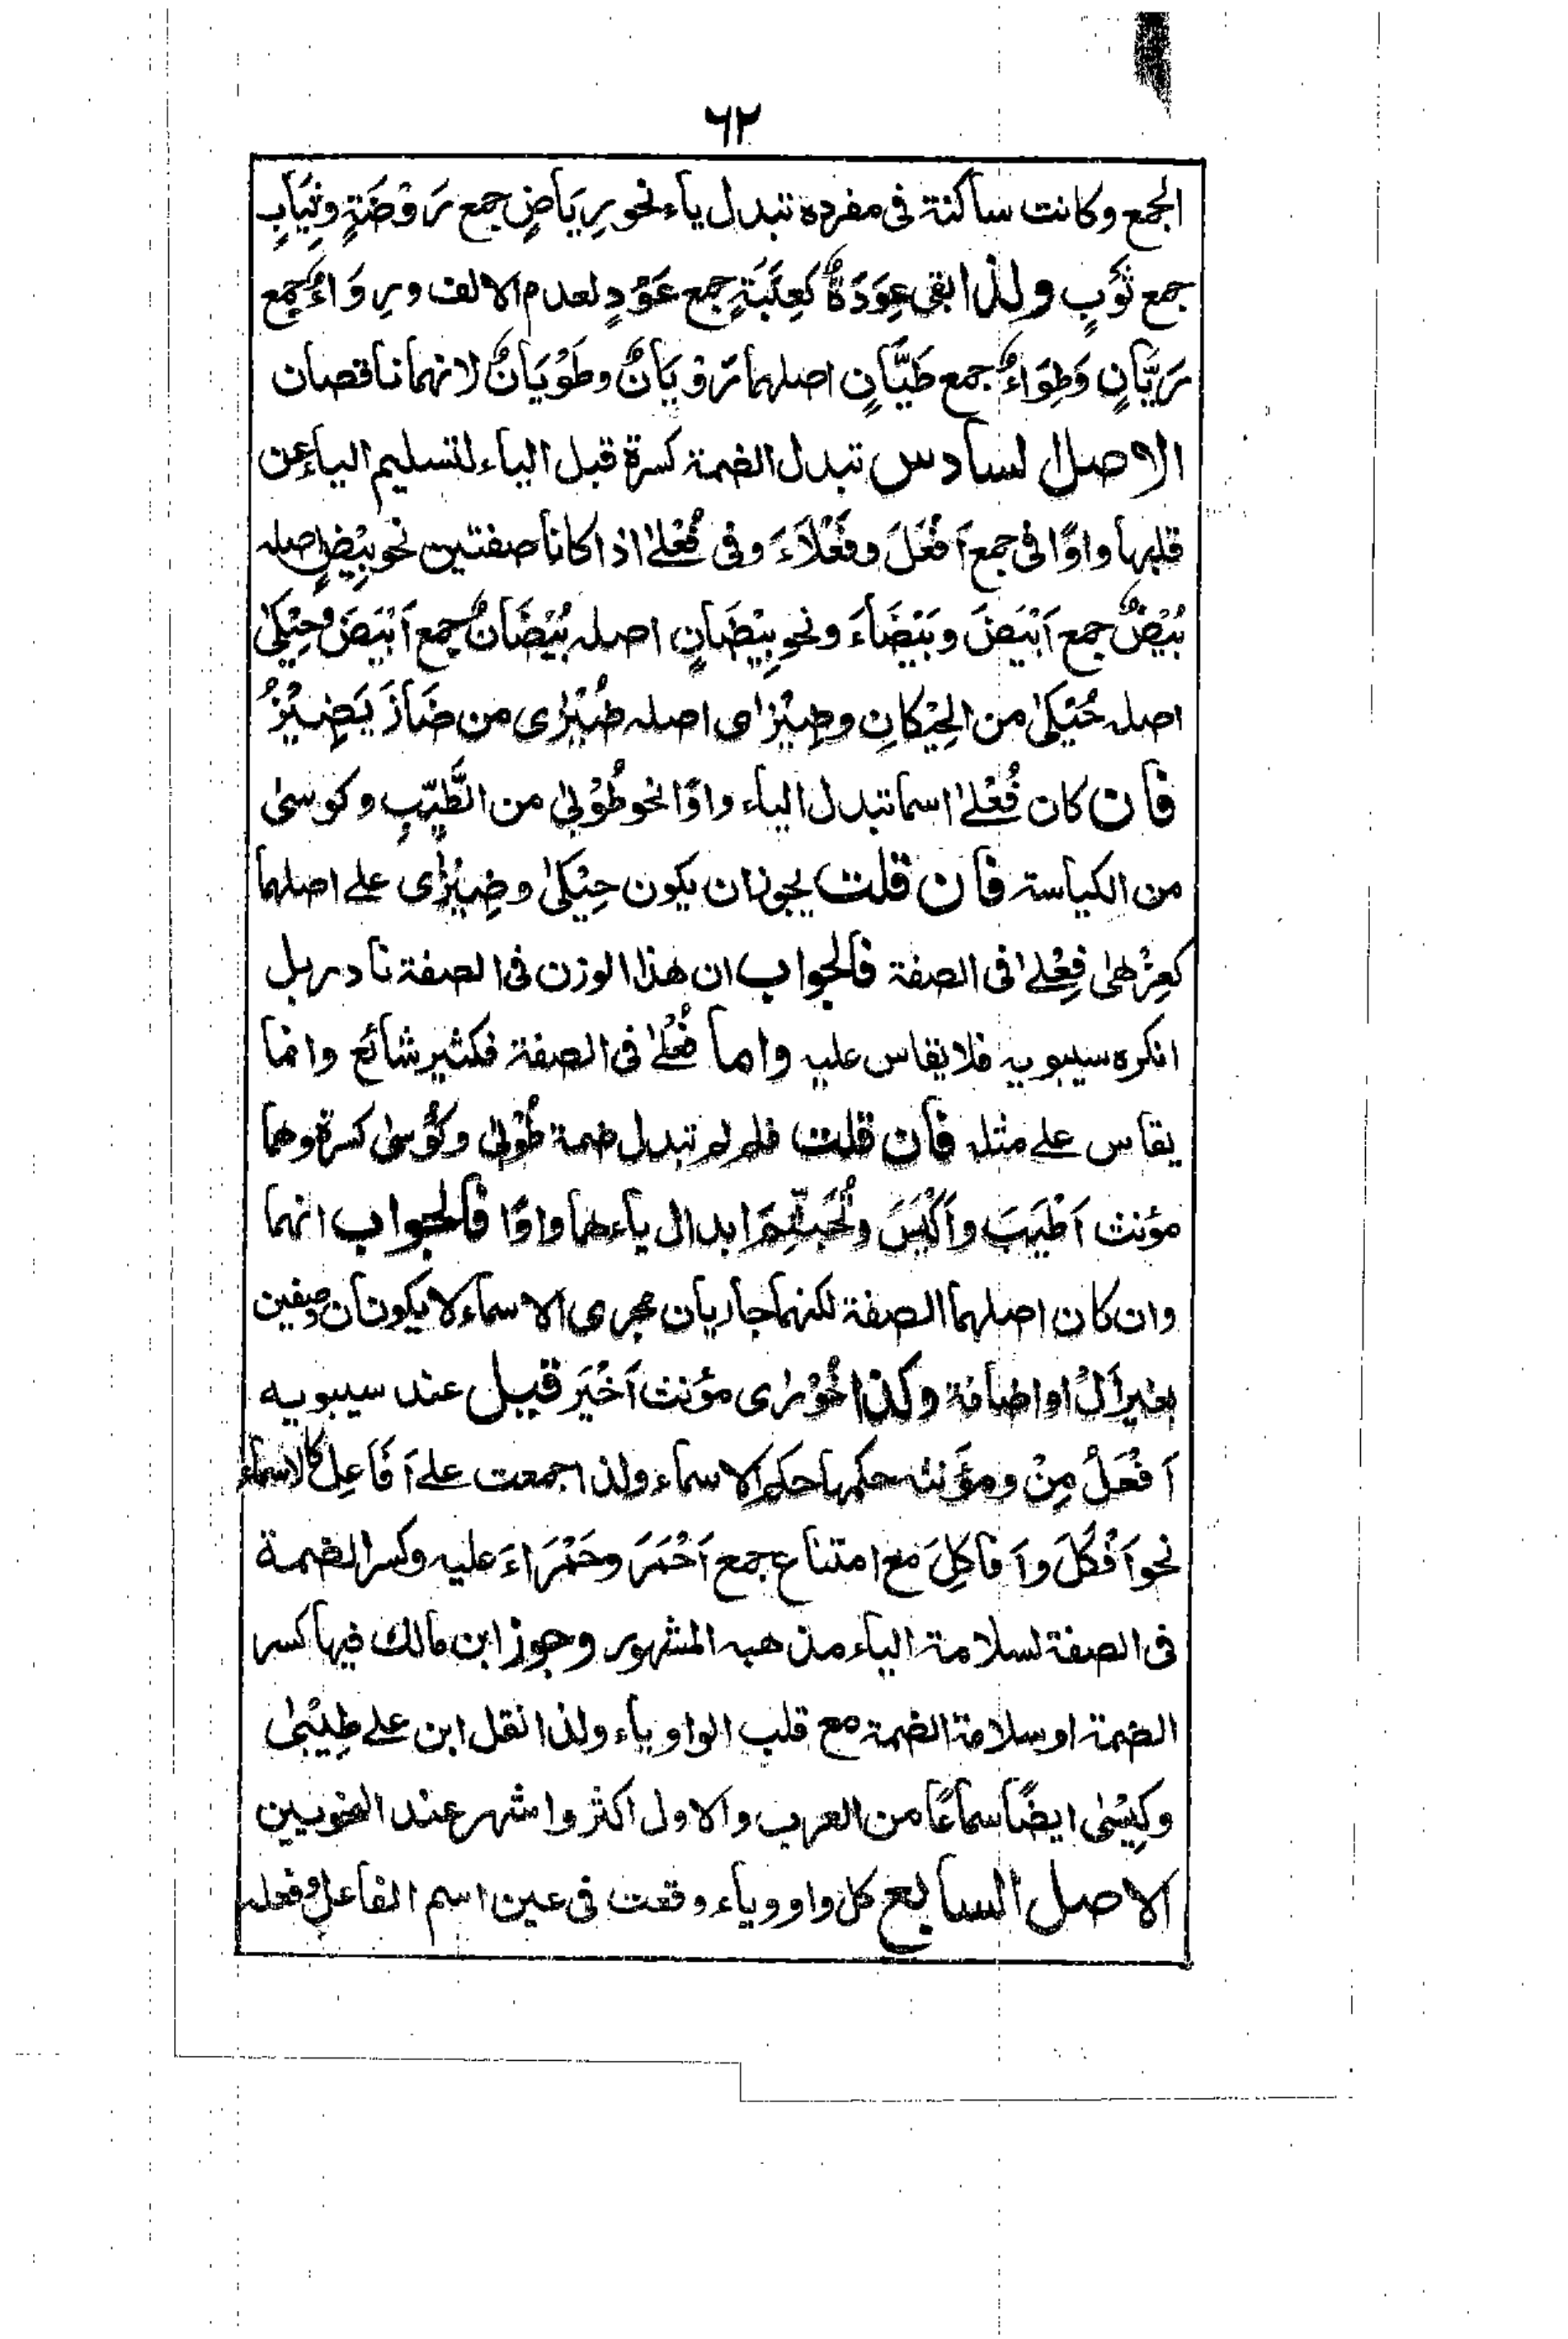 ٦٢
الجمع وكانت ساكنة فى مفرده تبدل ياء نحو رِيَاضٍ جمع رَوْضَةٍ وثِيَابٍ
جمع ثَوْبٍ ولذا ابقى عِوَدَةٌ كَعِنَبَةٍ جمع عَوْدٍ لعدم الالف ورِوَاءٌ جمع
رَيَّانٍ وَطِوَاءٌ جمع طَيَّانٍ اصلهما رَوْيَانٌ وطَوْيَانٌ لانهما ناقصان
الاصل السادس تبدل الضمة كسرة قبل الياء لتسليم الياء عن
قلبها واوًا فى جمع اَفْعَلَ وفَعْلَاءَ وفى فُعْلىٰ اذا كانا صفتين نحو بِيْضٍ اصله
بُيْضٌ جمع اَبْيَضَ وبَيْضَاءَ ونحو بِيْضَانٍ اصله بُيْضَانٌ جمع اَبْيَضَ وحِيْكىٰ
اصله حُيْكىٰ من الحَيْكَانِ وضِيْزٰى اصله ضُيْزٰى من ضَازَ يَضِيْزُ
فان كان فُعْلىٰ اسما تبدل الياء واوًا نحو طُوْبىٰ من الطَّيِّبِ وكوسىٰ
من الكياسة فان قلت يجوز ان يكون حِيْكىٰ وضِيْزٰى على اصلهما
كعِزْهىٰ فِعْلىٰ فى الصفة فالجواب ان هذا الوزن فى الصفة نادر بل
انكره سيبويه فلا يقاس عليه واما فُعْلىٰ فى الصفة فكثير شائع وانما
يقاس على مثله فان قلت فلم لم تبدل ضمة طُوْبىٰ وكُوْسىٰ كسرة وهما
مؤنث اَطْيَبَ واَكْيَسَ ابدال ياءهما واوًا فالجواب انهما
وان كان اصلهما الصفة لكنهما جاريان مجرى الاسماء لا يكونان وصفين
بغير اَلْ او اضافة وكذا خُوْرٰى مؤنث اَخْيَر قيل عند سيبويه
اَفْعَلُ مِنْ ومؤَنثه حكمها حكم الاسماء ولذا جمعت على اَفَاعِل كالاسماء
نحو اَفْكَلَ واَفَاكِلَ مع امتناع جمع اَحْمَرَ وحَمْرَاءَ عليه وكسر الضمة
فى الصفة لسلامة الياء مذهبه المشهور وجوز ابن مالك فيها كسر
الضمة او سلامة الضمة مع قلب الواو ياء ولذا نقل ابن على طِيْبىٰ
وكِيْسىٰ ايضًا سماعًا من العرب والاول اكثر واشهر عند النحويين
الاصل السابع كل واو وياء وقعت فى عين اسم الفاعل وفعله